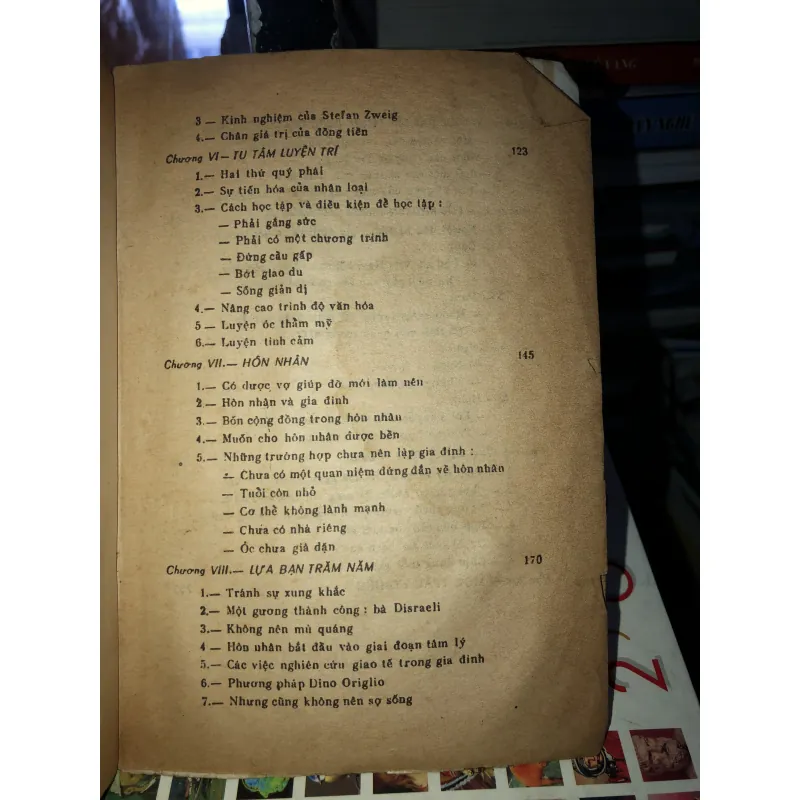 3 — Kinh nghiệm của Stefan Zweig
4.— Chân giá trị của đồng tiền
Chương VI — TU TÂM LUYỆN TRÍ 123
1.— Hai thứ quý phái
2.— Sự tiến hóa của nhân loại
3.— Cách học tập và điều kiện để học tập :
— Phải gắng sức
— Phải có một chương trình
— Đừng cầu gấp
— Bớt giao du
— Sống giản dị
4.— Nâng cao trình độ văn hóa
5 — Luyện óc thẩm mỹ
6.— Luyện tình cảm
Chương VII.— HÔN NHÂN 145
1.— Có được vợ giúp đỡ mới làm nên
2.— Hôn nhận và gia đình
3.— Bốn cộng đồng trong hôn nhân
4.— Muốn cho hôn nhân được bền
5.— Những trường hợp chưa nên lập gia đình :
— Chưa có một quan niệm đứng đắn về hôn nhân
— Tuổi còn nhỏ
— Cơ thể không lành mạnh
— Chưa có nhà riêng
— Óc chưa già dặn
Chương VIII.— LỰA BẠN TRĂM NĂM 170
1.— Tránh sự xung khắc
2.— Một gương thành công : bà Disraeli
3.— Không nên mù quáng
4 — Hôn nhân bắt đầu vào giai đoạn tâm lý
5.— Các việc nghiên cứu giao tế trong gia đình
6.— Phương pháp Dino Origlio
7.— Nhưng cũng không nên sợ sống